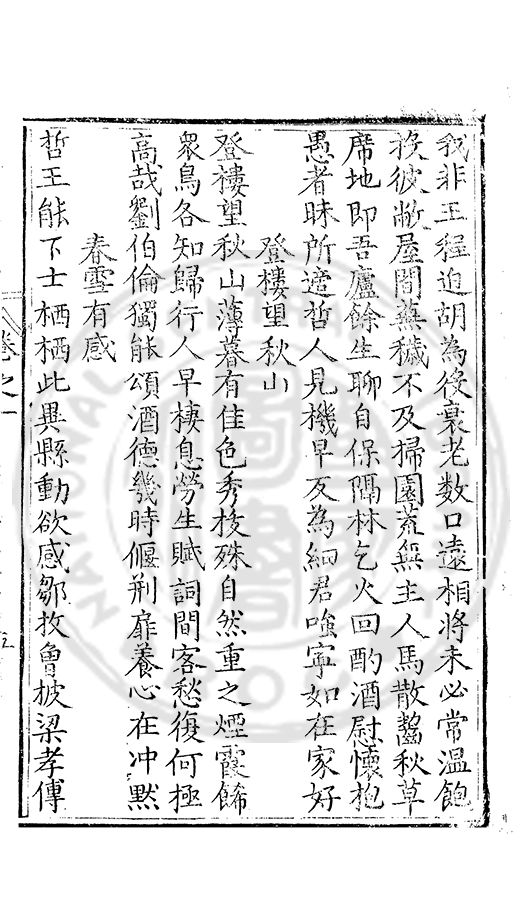 我非王程迫胡為後衰老数口遠相將未必常溫飽
投彼敝屋間蕪穢不及掃園荒無主人馬散齧秋草
席地即吾廬餘生聊自保隔林乞火回酌酒慰懷抱
愚者昧所適哲人見機早反為細君嗤寧如在家好
登樓望秋山
登樓望秋山薄暮有佳色秀援殊自然重之煙霞餙
衆鳥各知歸行人早棲息勞生賦詞間客愁復何極
高哉劉伯倫獨能頌酒德幾時偃荆扉養心在冲默
春雪有感
哲王能下士栖栖此異縣動欲感鄒枚曾披梁孝傳
卷之一
五